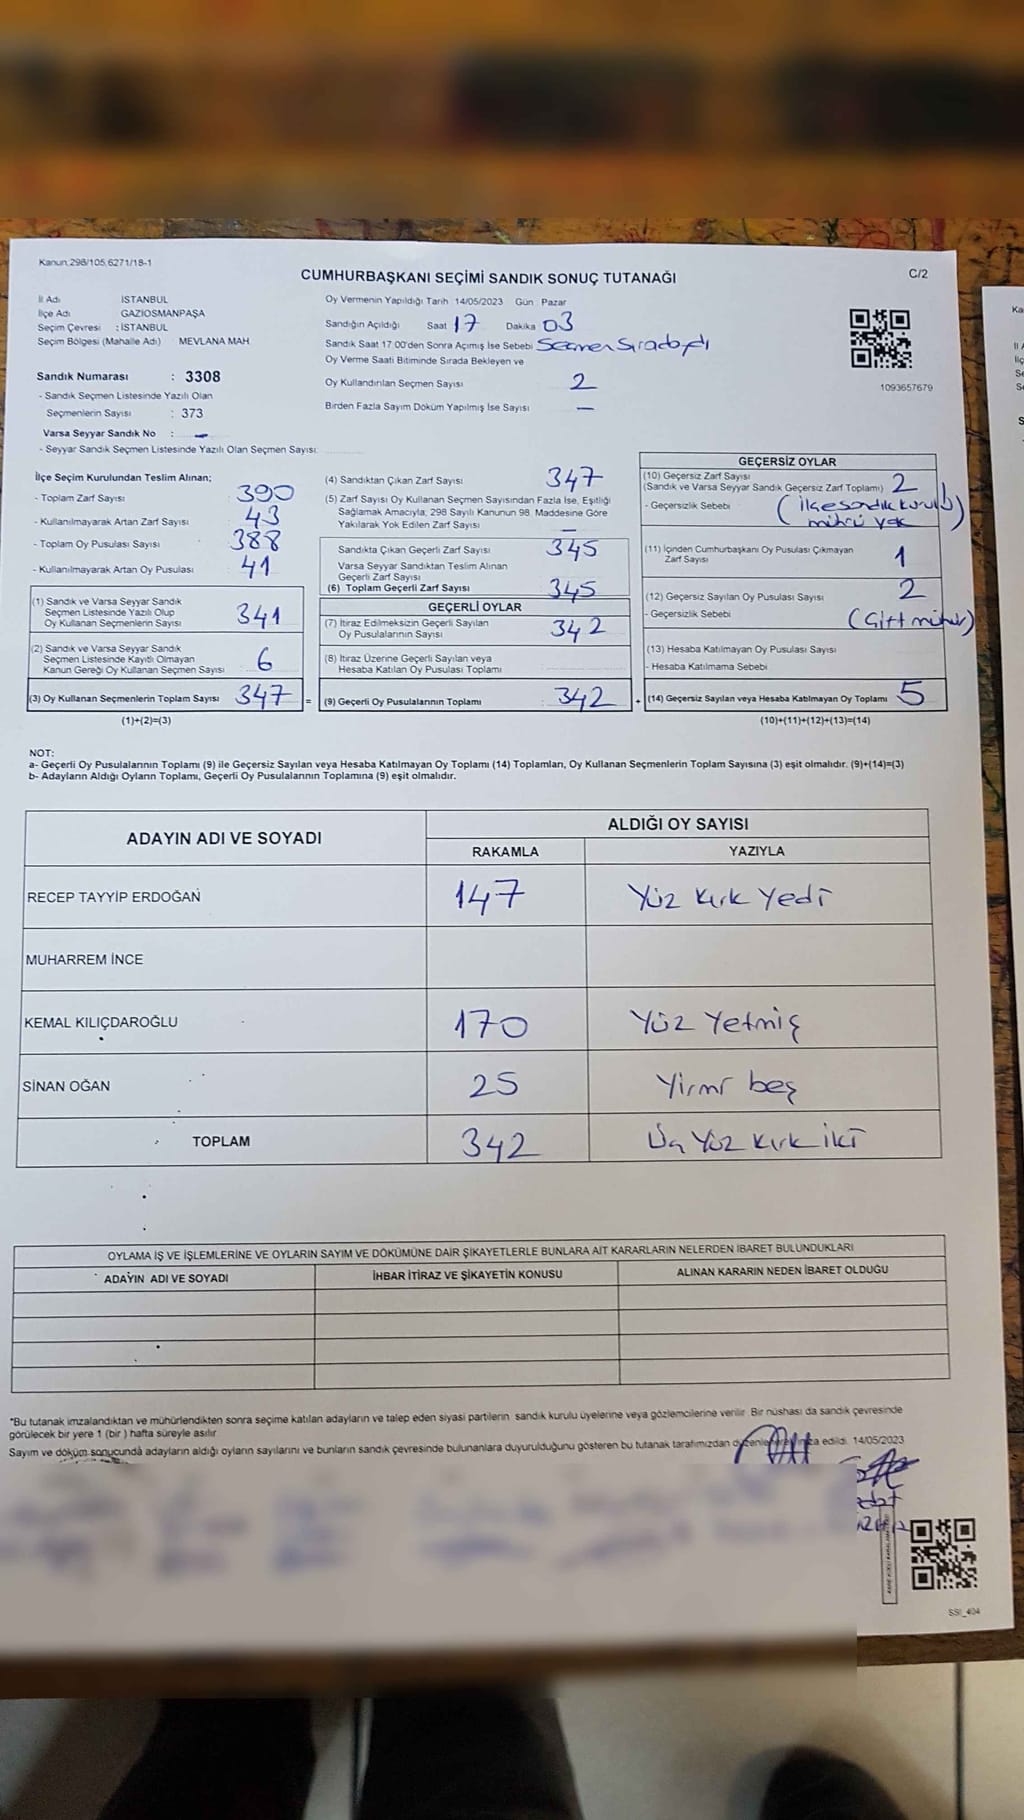 Kanun:298/105,6271/18-1
CUMHURBAŞKANI SEÇİMİ SANDIK SONUÇ TUTANAĞI
C/2
İl Adı İSTANBUL
İlçe Adı GAZİOSMANPAŞA
Seçim Çevresi : İSTANBUL
Seçim Bölgesi (Mahalle Adı) MEVLANA MAH
Sandık Numarası : 3308
- Sandık Seçmen Listesinde Yazılı Olan
Seçmenlerin Sayısı : 373
Varsa Seyyar Sandık No : —
- Seyyar Sandık Seçmen Listesinde Yazılı Olan Seçmen Sayısı:
Oy Vermenin Yapıldığı Tarih 14/05/2023 Gün : Pazar
Sandığın Açıldığı Saat 17 Dakika 03
Sandık Saat 17:00'den Sonra Açımış İse Sebebi Seçmen Sıradaydı
Oy Verme Saati Bitiminde Sırada Bekleyen ve
Oy Kullandırılan Seçmen Sayısı 2
Birden Fazla Sayım Döküm Yapılmış İse Sayısı —
1093657679
İlçe Seçim Kurulundan Teslim Alınan;
- Toplam Zarf Sayısı 390
- Kullanılmayarak Artan Zarf Sayısı 43
- Toplam Oy Pusulası Sayısı 388
- Kullanılmayarak Artan Oy Pusulası 41
(1) Sandık ve Varsa Seyyar Sandık
Seçmen Listesinde Yazılı Olup
Oy Kullanan Seçmenlerin Sayısı 341
(2) Sandık ve Varsa Seyyar Sandık
Seçmen Listesinde Kayıtlı Olmayan
Kanun Gereği Oy Kullanan Seçmen Sayısı 6
(3) Oy Kullanan Seçmenlerin Toplam Sayısı 347 =
(1)+(2)=(3)
(4) Sandıktan Çıkan Zarf Sayısı 347
(5) Zarf Sayısı Oy Kullanan Seçmen Sayısından Fazla İse, Eşitliği
Sağlamak Amacıyla; 298 Sayılı Kanunun 98. Maddesine Göre
Yakılarak Yok Edilen Zarf Sayısı —
Sandıkta Çıkan Geçerli Zarf Sayısı 345
Varsa Seyyar Sandıktan Teslim Alınan
Geçerli Zarf Sayısı
(6) Toplam Geçerli Zarf Sayısı 345
GEÇERLİ OYLAR
(7) İtiraz Edilmeksizin Geçerli Sayılan
Oy Pusulalarının Sayısı 342
(8) İtiraz Üzerine Geçerli Sayılan veya
Hesaba Katılan Oy Pusulası Toplamı
(9) Geçerli Oy Pusulalarının Toplamı 342 +
GEÇERSİZ OYLAR
(10) Geçersiz Zarf Sayısı
(Sandık ve Varsa Seyyar Sandık Geçersiz Zarf Toplamı) 2
- Geçersizlik Sebebi (ilçe sandık kurulu
mührü yok)
(11) İçinden Cumhurbaşkanı Oy Pusulası Çıkmayan
Zarf Sayısı 1
(12) Geçersiz Sayılan Oy Pusulası Sayısı 2
- Geçersizlik Sebebi (Çift mühür)
(13) Hesaba Katılmayan Oy Pusulası Sayısı
- Hesaba Katılmama Sebebi
(14) Geçersiz Sayılan veya Hesaba Katılmayan Oy Toplamı 5
(10)+(11)+(12)+(13)=(14)
NOT:
a- Geçerli Oy Pusulalarının Toplamı (9) ile Geçersiz Sayılan veya Hesaba Katılmayan Oy Toplamı (14) Toplamları, Oy Kullanan Seçmenlerin Toplam Sayısına (3) eşit olmalıdır. (9)+(14)=(3)
b- Adayların Aldığı Oyların Toplamı, Geçerli Oy Pusulalarının Toplamına (9) eşit olmalıdır.
ADAYIN ADI VE SOYADI ALDIĞI OY SAYISI
RAKAMLA YAZIYLA
RECEP TAYYİP ERDOĞAN 147 Yüz kırk yedi
MUHARREM İNCE
KEMAL KILIÇDAROĞLU 170 Yüz Yetmiş
SİNAN OĞAN 25 Yirmi beş
TOPLAM 342 Üç Yüz kırk iki
OYLAMA İŞ VE İŞLEMLERİNE VE OYLARIN SAYIM VE DÖKÜMÜNE DAİR ŞİKAYETLERLE BUNLARA AİT KARARLARIN NELERDEN İBARET BULUNDUKLARI
ADAYIN ADI VE SOYADI İHBAR İTİRAZ VE ŞİKAYETİN KONUSU ALINAN KARARIN NEDEN İBARET OLDUĞU
*Bu tutanak imzalandıktan ve mühürlendikten sonra seçime katılan adayların ve talep eden siyasi partilerin sandık kurulu üyelerine veya gözlemcilerine verilir. Bir nüshası da sandık çevresinde
görülecek bir yere 1 (bir) hafta süreyle asılır
Sayım ve döküm sonucunda adayların aldığı oyların sayılarını ve bunların sandık çevresinde bulunanlara duyurulduğunu gösteren bu tutanak tarafımızdan düzenlenerek imza edildi. 14/05/2023
SSI_404